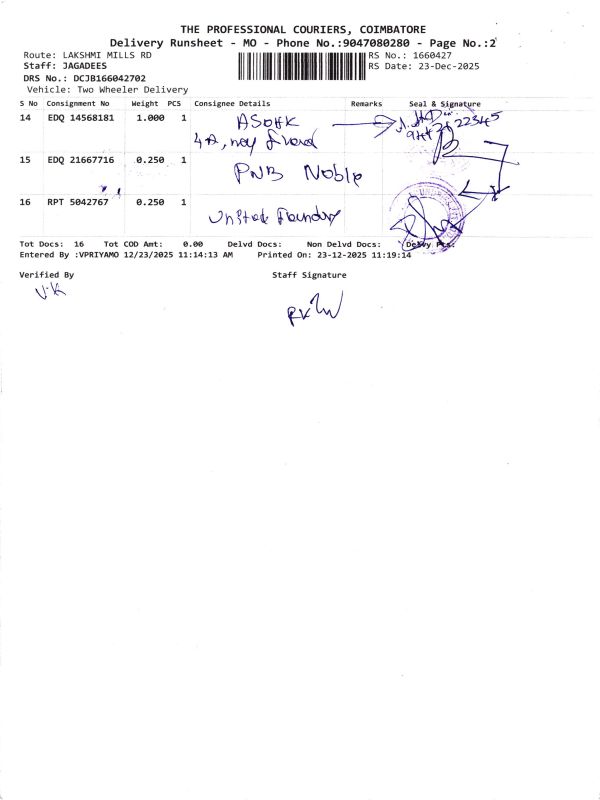 THE PROFESSIONAL COURIERS, COIMBATORE
Delivery Runsheet - MO - Phone No.:9047080280 - Page No.:2
Route: LAKSHMI MILLS RD
RS No.: 1660427
Staff: JAGADEES
RS Date: 23-Dec-2025
DRS No.: DCJB166042702
Vehicle: Two Wheeler Delivery
S No Consignment No Weight PCS Consignee Details Remarks Seal & Signature
14 EDQ 14568181 1.000 1 ASOHK
15 EDQ 21667716 0.250 1 PNB Noble
16 RPT 5042767 0.250 1 United Foundry
Tot Docs: 16 Tot COD Amt: 0.00 Delvd Docs: Non Delvd Docs: Delvy Pct:
Entered By :VPRIYAMO 12/23/2025 11:14:13 AM Printed On: 23-12-2025 11:19:14
Verified By Staff Signature
V.K